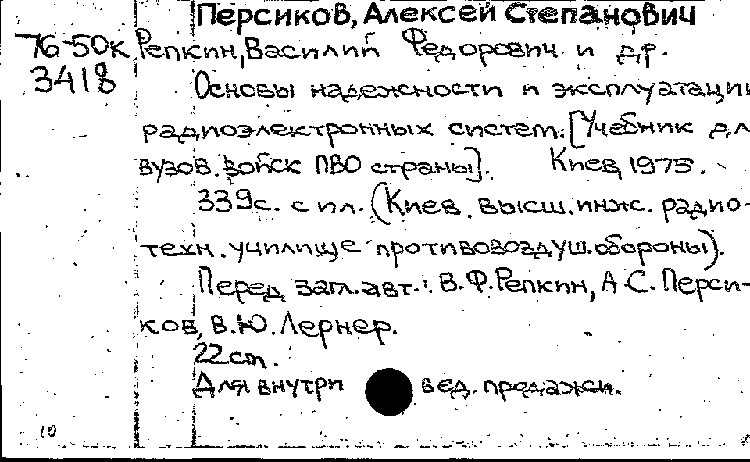 Персиков, Алексей Степанович
76-50к Репкин, Василий Федорович и др.
3418 Основы надежности и эксплуатации
радиоэлектронных систем. [Учебник дл
вузов. войск ПВО страны]. Киев, 1975.
339с. с ил. (Киев. высш. инж. радио-
техн. училище противовоздуш. обороны).
Перед загл. авт.: В.Ф. Репкин, А.С. Перси-
ков, В.Ю. Лернер.
22cm.
Для внутри вед. продажи.
10